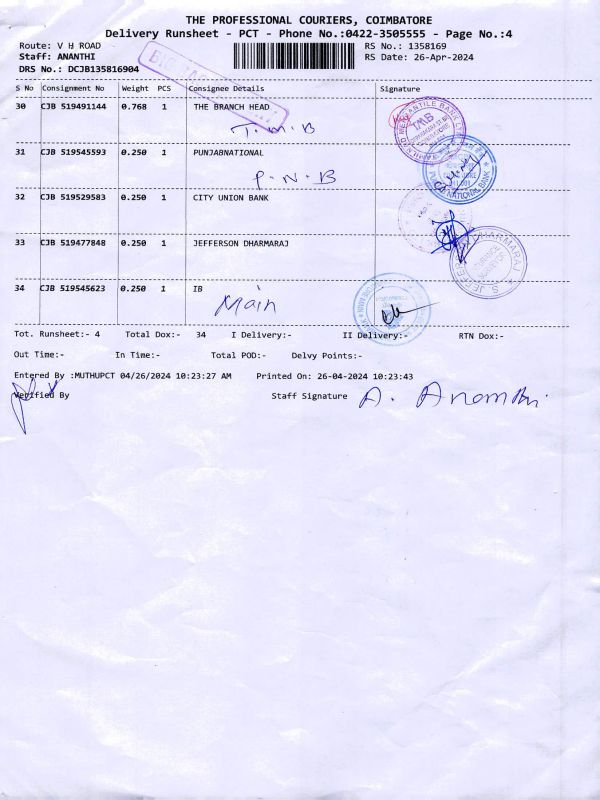 THE PROFESSIONAL COURIERS, COIMBATORE
Delivery Runsheet - PCT - Phone No.:0422-3505555 - Page No.:4
Route: V H ROAD RS No.: 1358169
Staff: ANANTHI RS Date: 26-Apr-2024
DRS No.: DCJB135816904
S No Consignment No Weight PCS Consignee Details Signature
30 CJB 519491144 0.768 1 THE BRANCH HEAD
T.M.B
31 CJB 519545593 0.250 1 PUNJABNATIONAL
P.N.B
32 CJB 519529583 0.250 1 CITY UNION BANK
33 CJB 519477848 0.250 1 JEFFERSON DHARMARAJ
34 CJB 519545623 0.250 1 IB
Main
Tot. Runsheet:- 4 Total Dox:- 34 I Delivery:- II Delivery:- RTN Dox:-
Out Time:- In Time:- Total POD:- Delvy Points:-
Entered By :MUTHUPCT 04/26/2024 10:23:27 AM Printed On: 26-04-2024 10:23:43
Verified By Staff Signature A. Ananthi